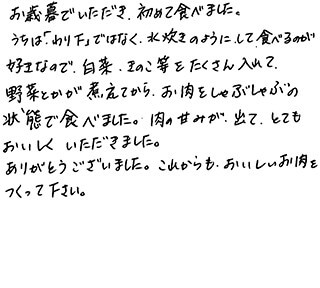 お歳暮でいただき、初めて食べました。
うちは「わり下」ではなく、水炊きのように、して食べるのが
好きなので、白菜・きのこ等をたくさん入れて、
野菜とかが煮えてから、お肉をしゃぶしゃぶの
状態で食べました。肉の甘みが、出て、とても
おいしくいただきました。
ありがとうございました。これからも、おいしいお肉を
つくって下さい。